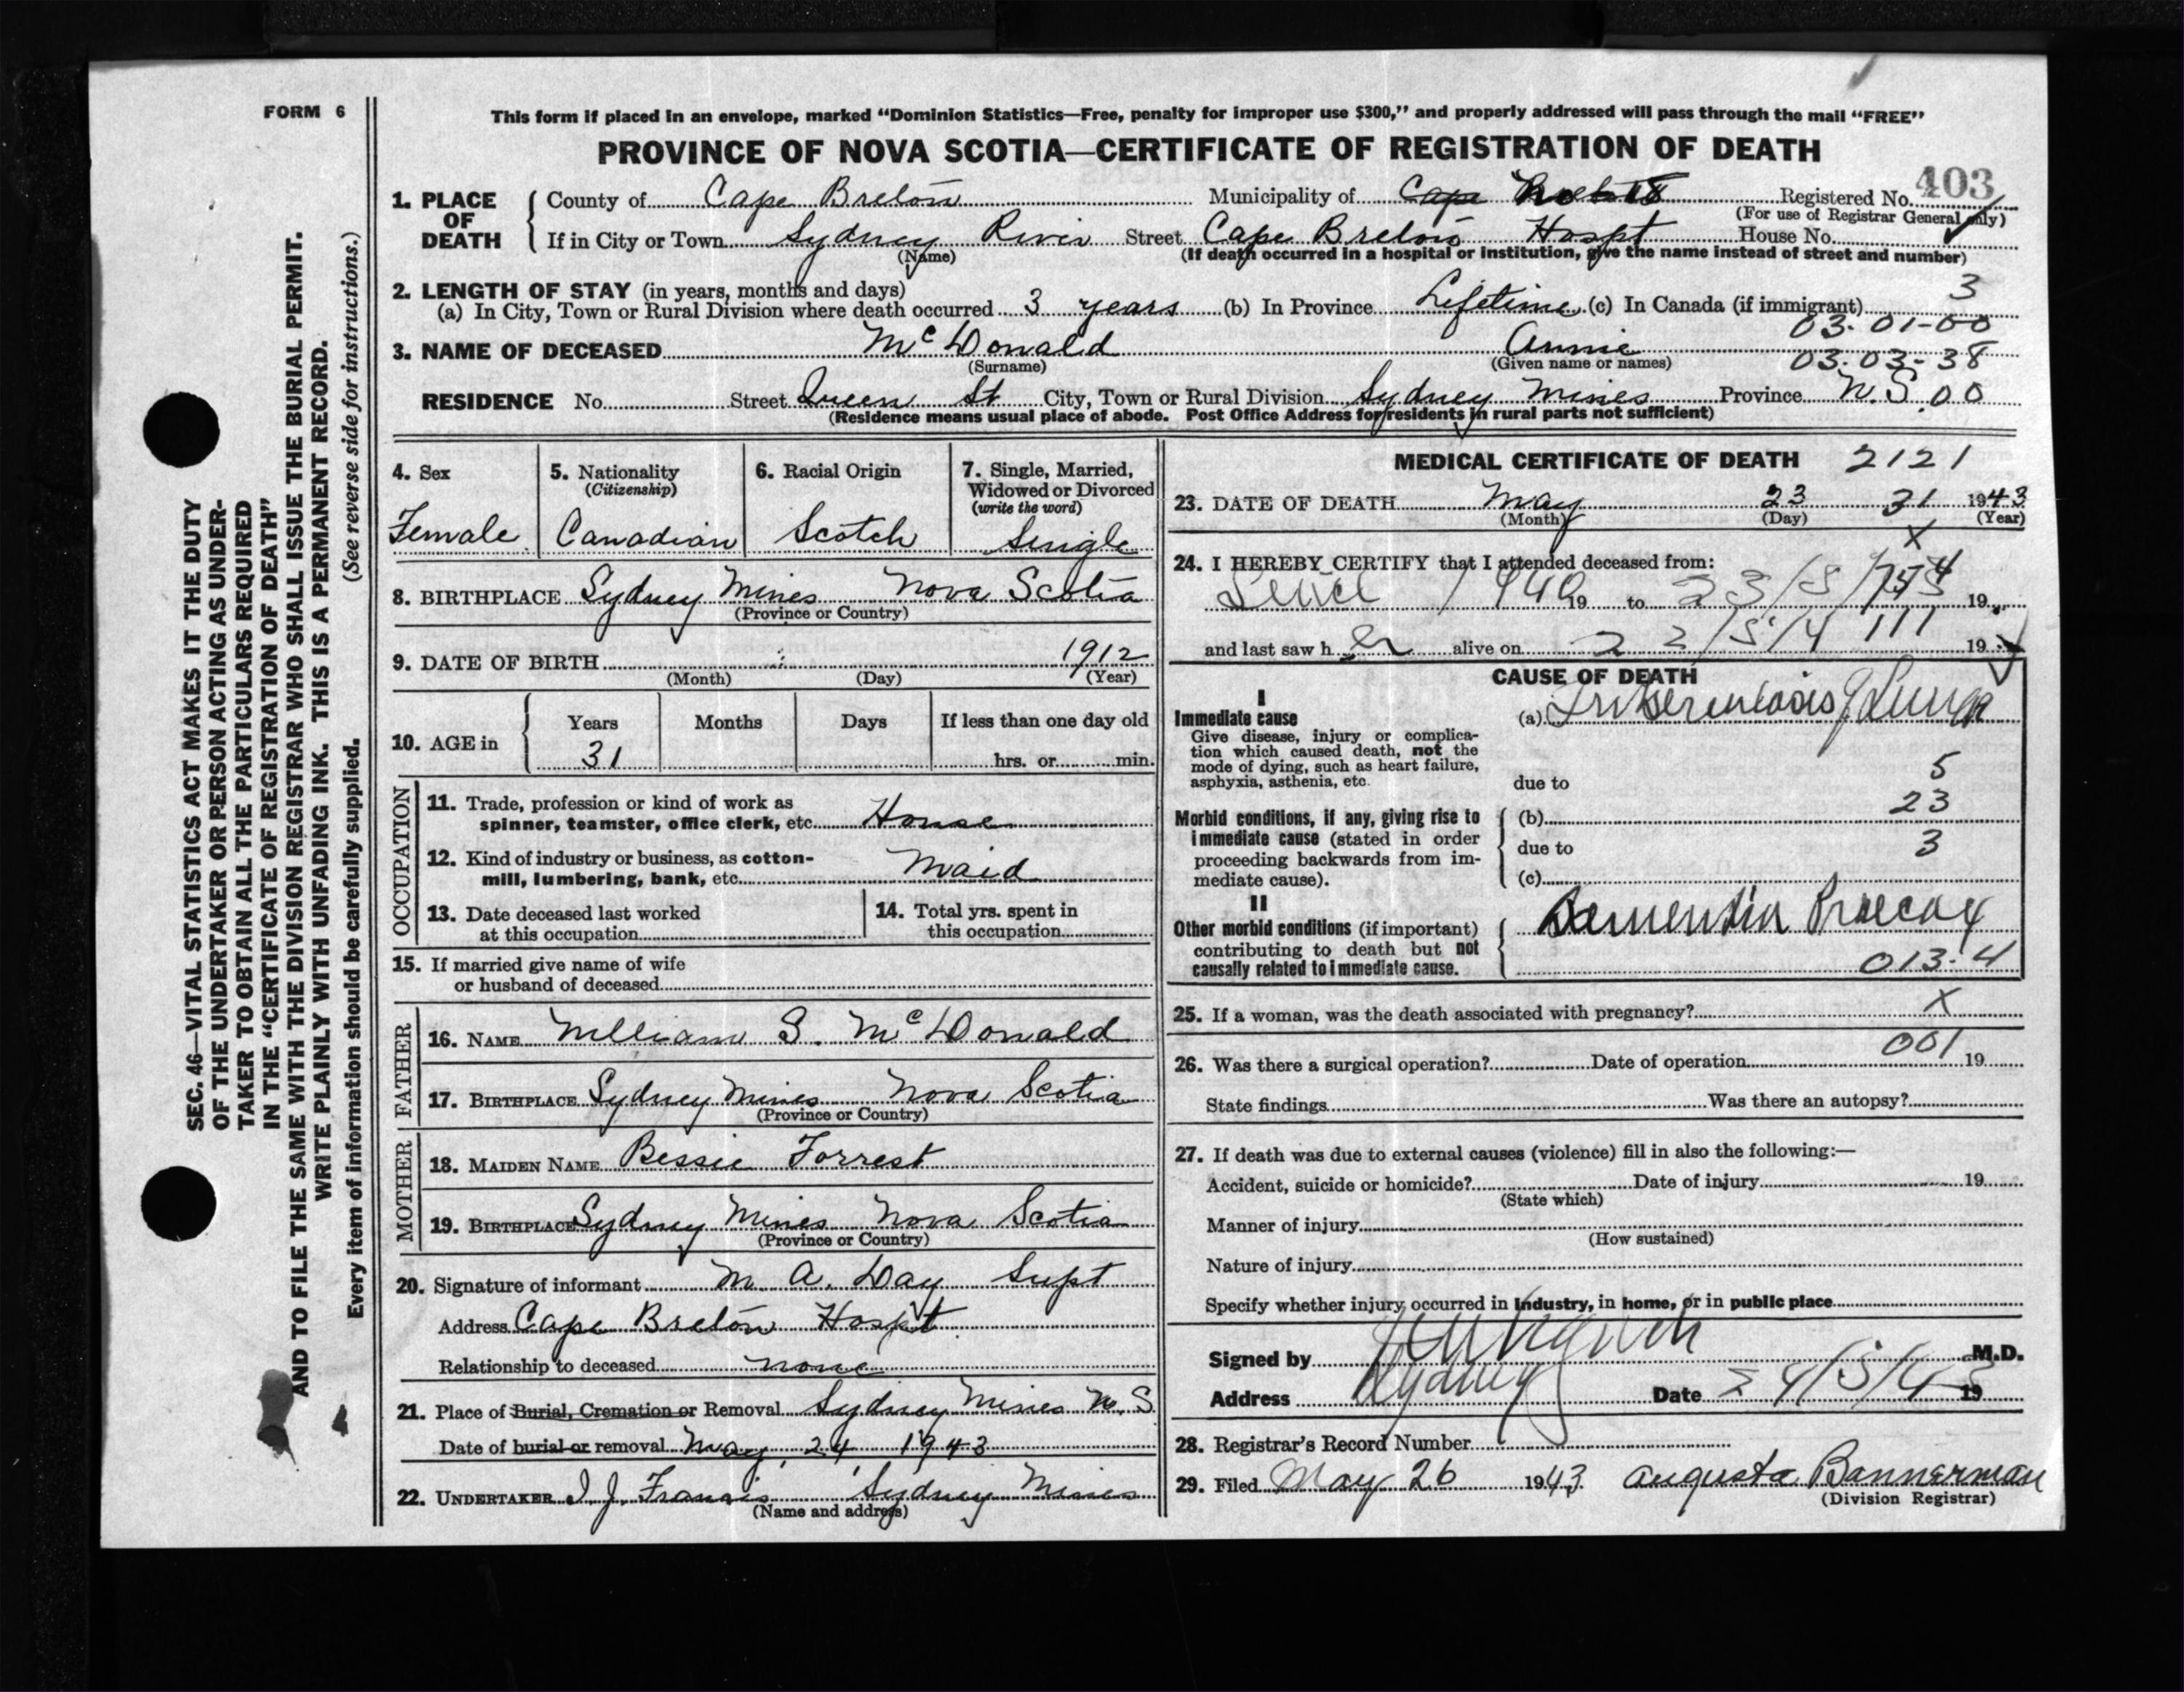 FORM 6
This form if placed in an envelope, marked "Dominion Statistics—Free, penalty for improper use $300," and properly addressed will pass through the mail "FREE"
PROVINCE OF NOVA SCOTIA—CERTIFICATE OF REGISTRATION OF DEATH
403
1. PLACE OF DEATH County of Cape Breton Municipality of Cape Registered No.
(For use of Registrar General only)
If in City or Town Sydney River Street Cape Breton Hospt House No.
(Name) (If death occurred in a hospital or institution, give the name instead of street and number)
2. LENGTH OF STAY (in years, months and days) 3
(a) In City, Town or Rural Division where death occurred 3 years (b) In Province Lifetime (c) In Canada (if immigrant)
03-01-00
3. NAME OF DECEASED McDonald Annie
(Surname) (Given name or names) 03-03-38
RESIDENCE No. Street Queen St City, Town or Rural Division Sydney Mines Province N.S. 00
(Residence means usual place of abode. Post Office Address for residents in rural parts not sufficient)
4. Sex 5. Nationality 6. Racial Origin 7. Single, Married,
(Citizenship) Widowed or Divorced
(write the word)
Female Canadian Scotch Single
8. BIRTHPLACE Sydney Mines Nova Scotia
(Province or Country)
9. DATE OF BIRTH 1912
(Month) (Day) (Year)
10. AGE in Years Months Days If less than one day old
31 hrs. or min.
OCCUPATION
11. Trade, profession or kind of work as
spinner, teamster, office clerk, etc. House
12. Kind of industry or business, as cotton-
mill, lumbering, bank, etc. Maid
13. Date deceased last worked 14. Total yrs. spent in
at this occupation this occupation
15. If married give name of wife
or husband of deceased
FATHER
16. NAME William S. McDonald
17. BIRTHPLACE Sydney Mines Nova Scotia
(Province or Country)
MOTHER
18. MAIDEN NAME Bessie Forrest
19. BIRTHPLACE Sydney Mines Nova Scotia
(Province or Country)
20. Signature of informant M. A. Day Supt
Address Cape Breton Hospt
Relationship to deceased none
21. Place of Burial, Cremation or Removal Sydney Mines N.S.
Date of burial or removal May, 24, 1943
22. UNDERTAKER J. J. Francis, Sydney Mines
(Name and address)
MEDICAL CERTIFICATE OF DEATH 2121
23. DATE OF DEATH May 23 31 1943
(Month) (Day) (Year)
X
24. I HEREBY CERTIFY that I attended deceased from:
1940 19 to 23/5/ 19
and last saw her alive on 22/5/4 19
CAUSE OF DEATH
I
Immediate cause
Give disease, injury or complica-
tion which caused death, not the
mode of dying, such as heart failure,
asphyxia, asthenia, etc.
(a) Tuberculosis of Lungs
due to 5
23
Morbid conditions, if any, giving rise to
immediate cause (stated in order
proceeding backwards from im-
mediate cause).
(b)
due to 3
(c)
II
Other morbid conditions (if important)
contributing to death but not
causally related to immediate cause.
Dementia Praecox
013-4
25. If a woman, was the death associated with pregnancy? X
001
26. Was there a surgical operation? Date of operation 19
State findings Was there an autopsy?
27. If death was due to external causes (violence) fill in also the following:—
Accident, suicide or homicide? Date of injury 19
(State which)
Manner of injury
(How sustained)
Nature of injury
Specify whether injury occurred in industry, in home, or in public place
Signed by M.D.
Address Sydney Date 24/5/43 19
28. Registrar's Record Number
29. Filed May 26 1943. Augusta Bannerman
(Division Registrar)
SEC. 46—VITAL STATISTICS ACT MAKES IT THE DUTY
OF THE UNDERTAKER OR PERSON ACTING AS UNDER-
TAKER TO OBTAIN ALL THE PARTICULARS REQUIRED
IN THE "CERTIFICATE OF REGISTRATION OF DEATH"
AND TO FILE THE SAME WITH THE DIVISION REGISTRAR WHO SHALL ISSUE THE BURIAL PERMIT.
WRITE PLAINLY WITH UNFADING INK. THIS IS A PERMANENT RECORD.
Every item of information should be carefully supplied. (See reverse side for instructions.)